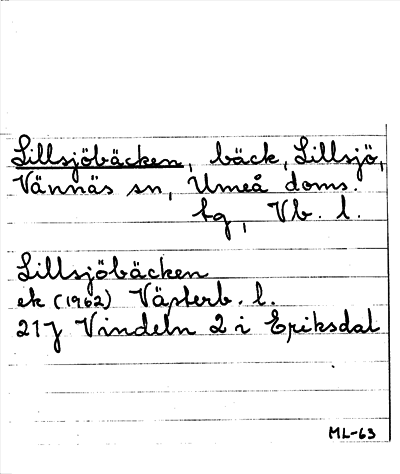 Lillsjöbäcken, bäck, Lillsjö,
Vännäs sn, Umeå doms.
hg, Vb. l.
Lillsjöbäcken
ek (1962) Västerb. l.
21J Vindeln 2 i Eriksdal
ML-63